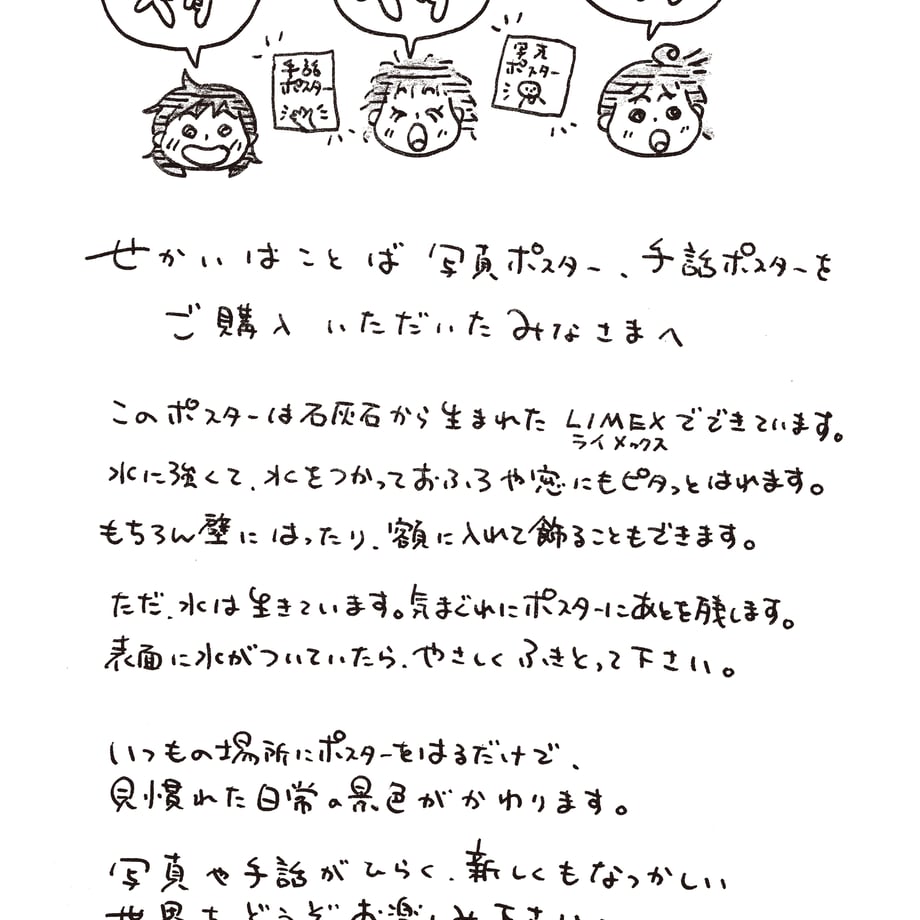 手話
ポスター
写真
ポスター
せかいはことば 写真ポスター、手話ポスターを
ご購入 いただいた みなさまへ
このポスターは石灰石から生まれた LIMEXでできています。
ライメックス
水に強くて、水をつかっておふろや窓にもピタっとはれます。
もちろん壁にはったり、額に入れて飾ることもできます。
ただ、水は生きています。気まぐれにポスターにあとを残します。
表面に水がついていたら、やさしくふきとって下さい。
いつもの場所にポスターをはるだけで、
見慣れた日常の景色がかわります。
写真や手話がひらく、新しくもなつかしい
世界をどうぞお楽しみ下さい。